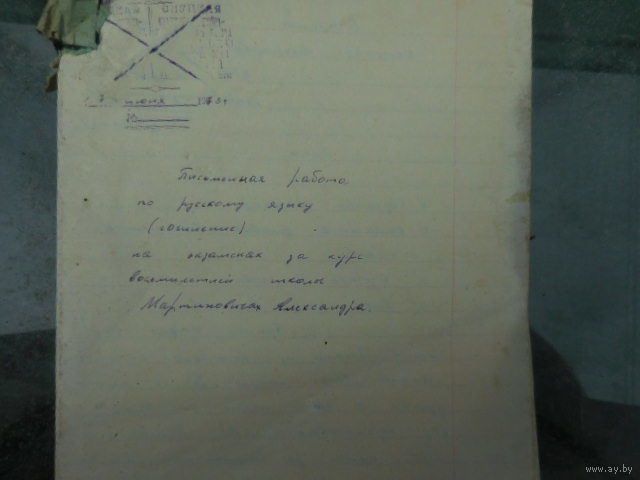 июня
Письменная работа
по русскому языку
(сочинение)
на экзаменах за курс
восьмилетней школы
Мартиновичах Александра.
www.ay.by